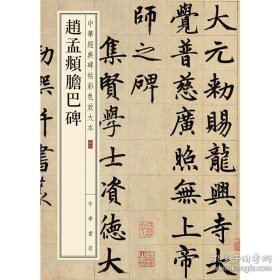 大元敕賜龍興寺大
覺普慈廣照無上帝
師之碑
集賢學士資德大
中華經典碑帖彩色放大本
趙孟頫膽巴碑
中華書局
撰并書